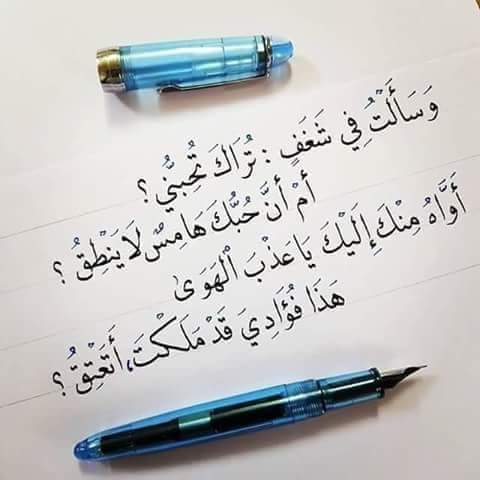 وَسَأَلْتُ فِي شَغَفٍ : تُرَاكَ تُحِبنُّيِ ؟
أَمْ أَنَّ حُبُّكَ هَامِسٌ لَا يَنْطِقُ ؟
أَوَّاهُ مِنْكَ إِلَيْكَ يَا عَذْبَ الْهَوَىٰ
هَذَا فُؤَادِيَ قَدْ مَلَكْتَ، أَتَعْتِقُ ؟